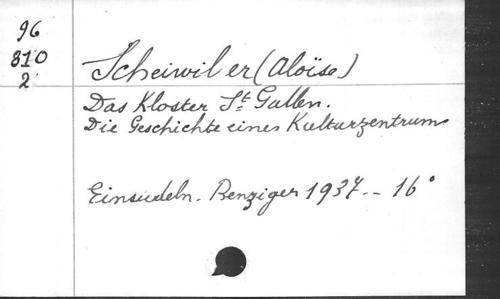 96
810
2
Scheiwiler (Aloïse)
Das Kloster St Gallen.
Die Geschichte eines Kulturzentrums
Einsiedeln. Benziger 1937.- 16°